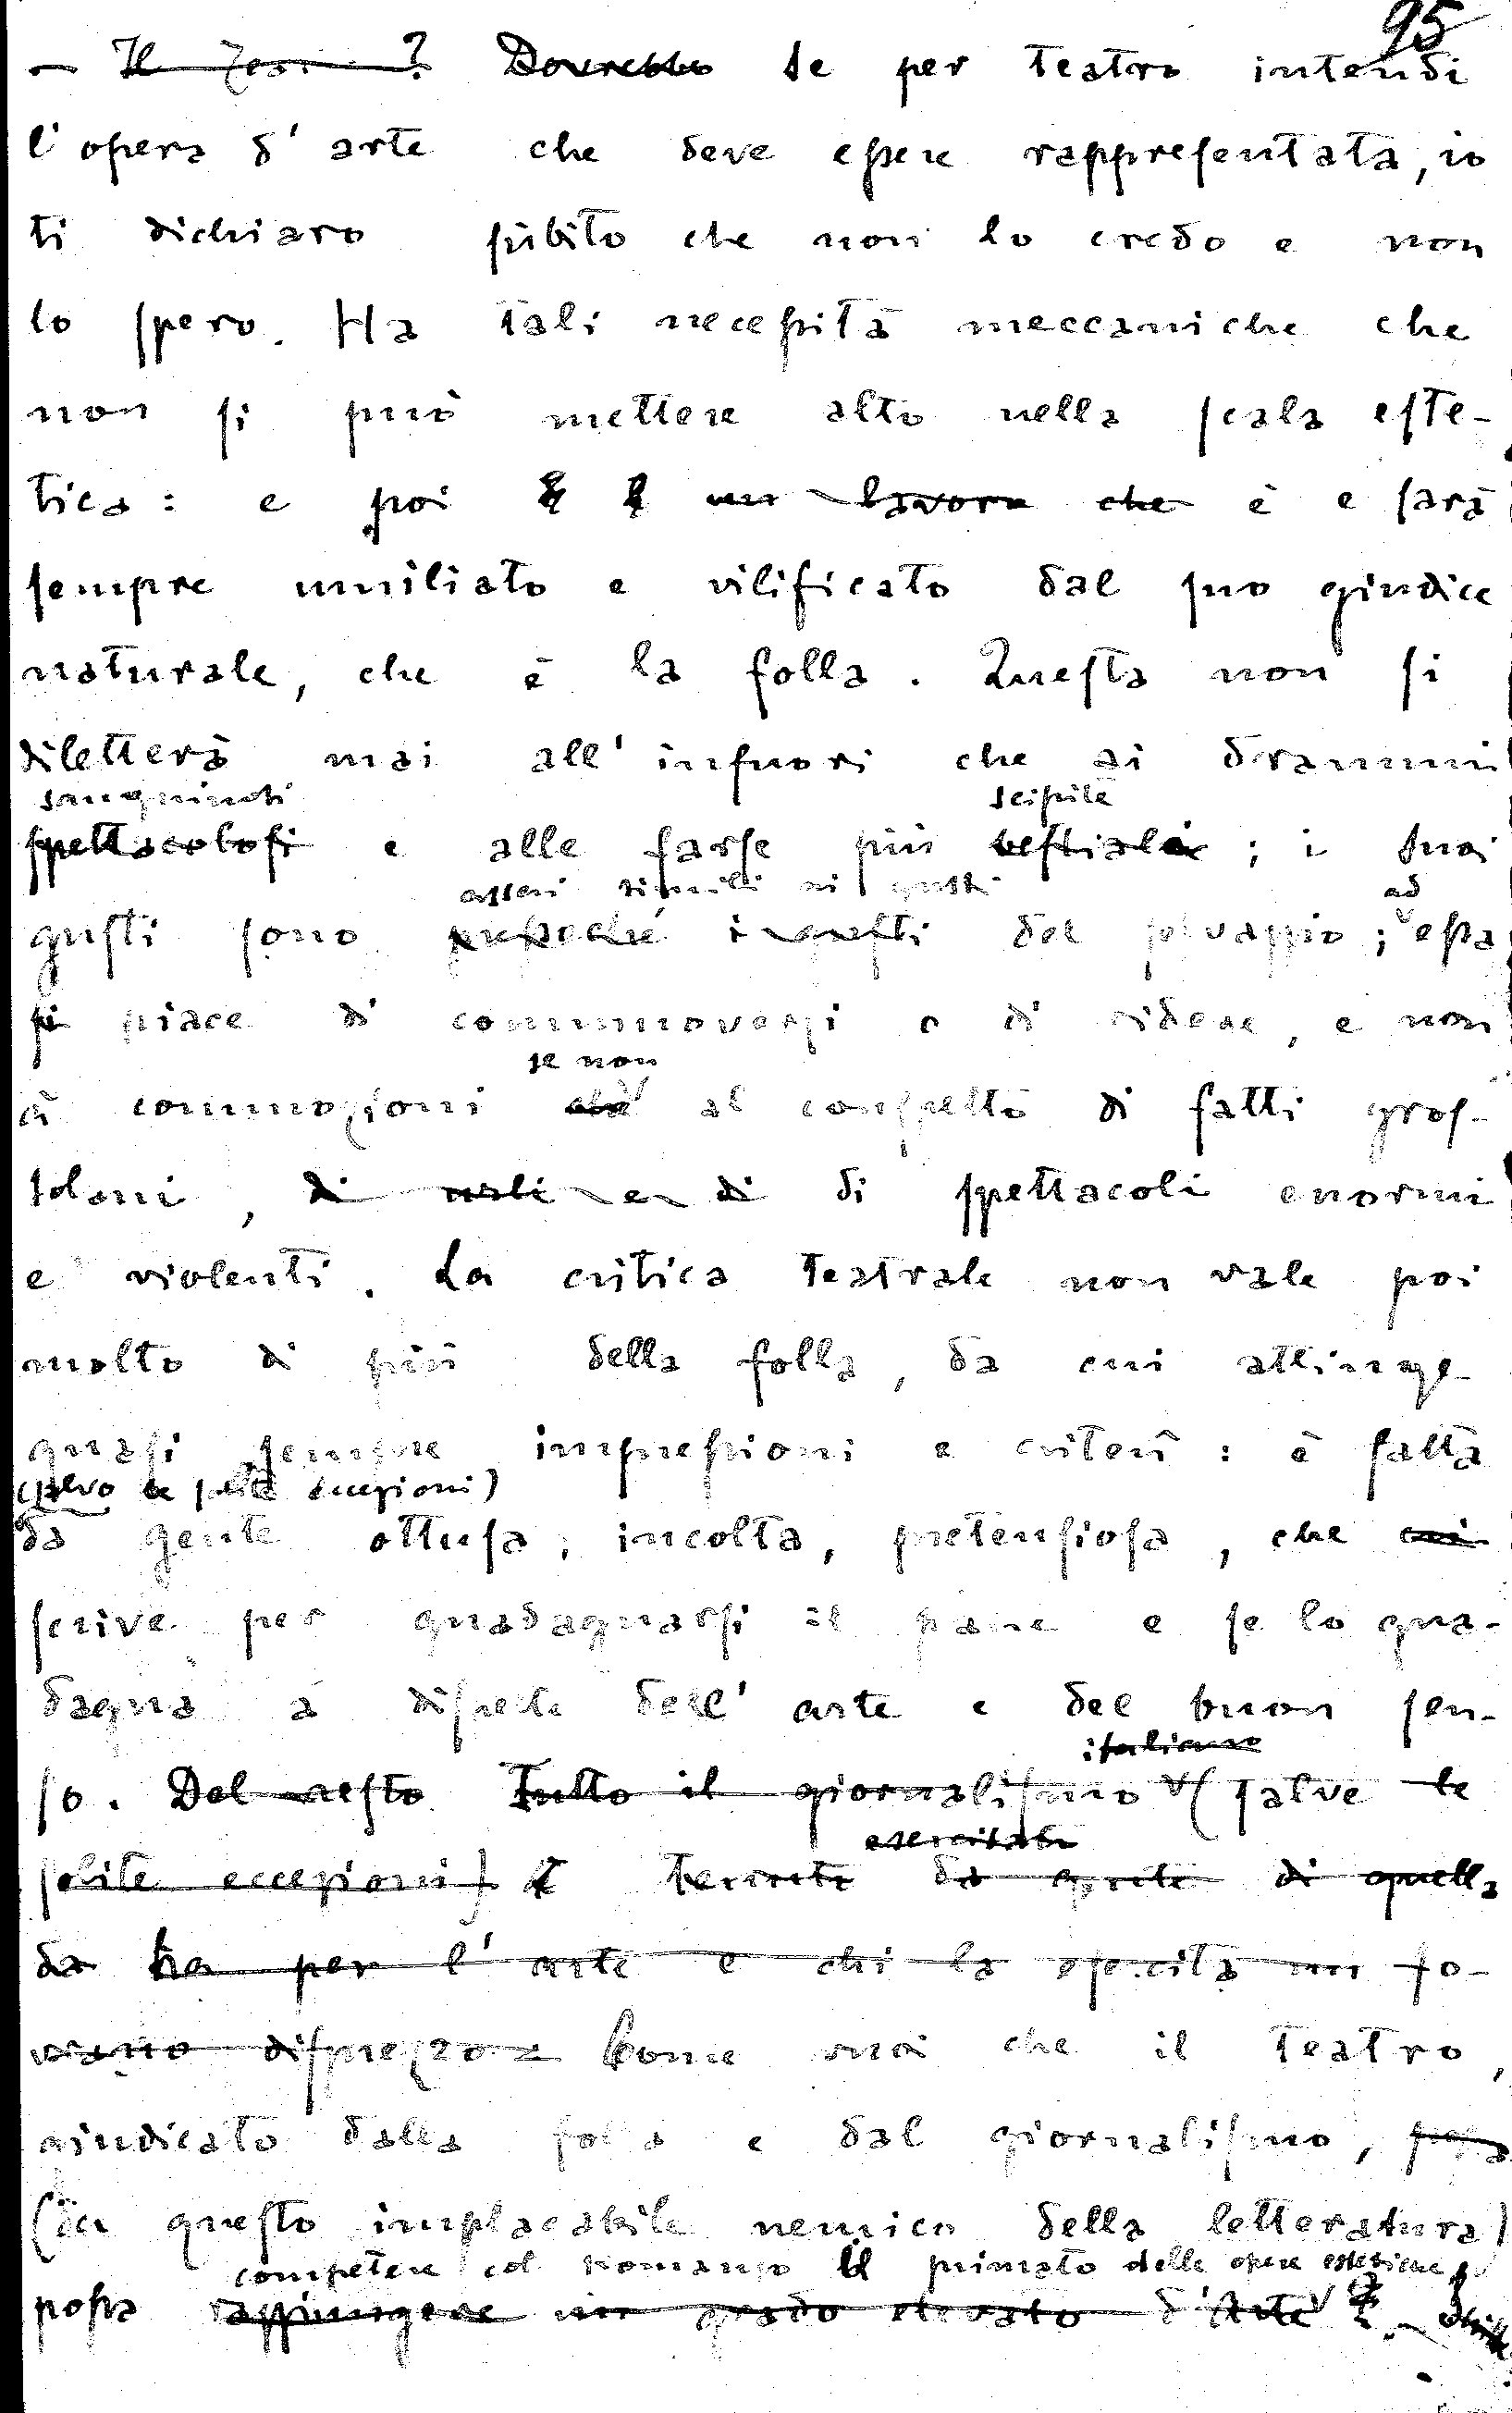 95
— Il Tea ? Dovrebbe Se per teatro intendi
l'opera d'arte che deve essere rappresentata, io
ti dichiaro subito che non lo credo e non
lo spero. Ha tali necessità meccaniche che
non si può mettere alto nella scala este-
tica: e poi un lavoro che è e sarà
sempre umiliato e vilificato dal suo giudice
naturale, che è la folla. Questa non si
diletterà mai all'infuori che ai drammi
sanguinosi scipite
spettacolosi e alle farse più bestiali; i suoi
assai simili ai gusti ad
gusti sono pressoché i gusti del selvaggio; essa
si piace di commuoversi o di ridere, e non
se non
à commozioni che al cospetto di fatti gros-
solani, di urli e di di spettacoli enormi
e violenti. La critica teatrale non vale poi
molto di più della folla, da cui attinge
quasi sempre impressioni e criterî: è fatta
(salvo le solite eccezioni)
da gente ottusa, incolta, pretensiosa, che
scrive per guadagnarsi il pane e se lo gua-
dagna a dispetto dell'arte e del buon sen-
italiano
so. Del resto Tutto il giornalismo (salve le
esercitato
solite eccezioni) è tenuto da gente di quella
da ha per l'arte e chi la esercita un so-
vrano disprezzo Come vuoi che il teatro,
giudicato dalla folla e dal giornalismo,
(da questo implacabile nemico della letteratura)
competere col romanzo il primato delle opere estetiche
possa raggiungere un grado elevato d'Arte?